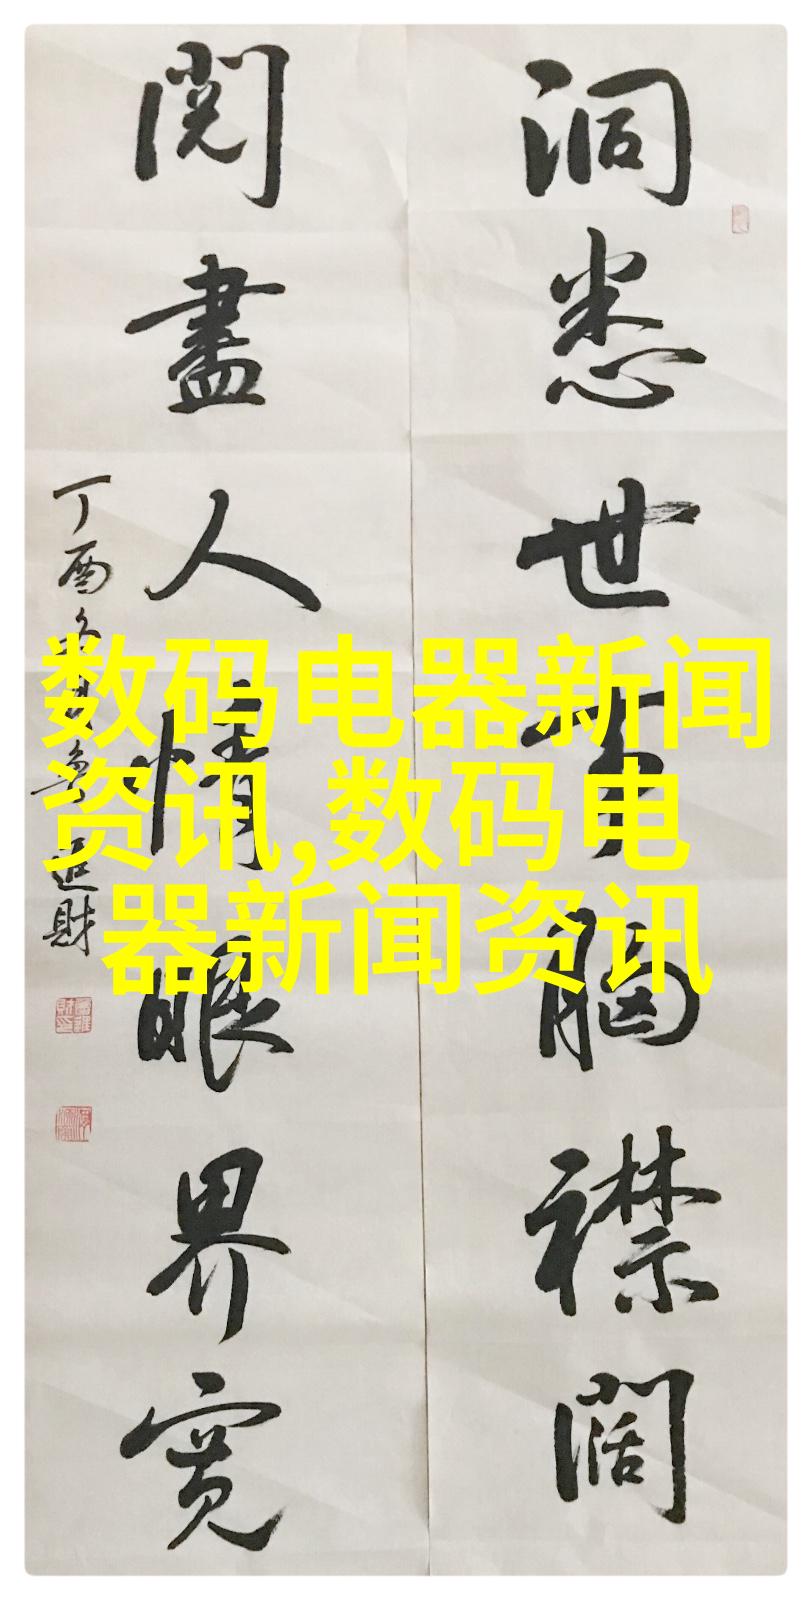 洞悉世事胸襟阔
閱盡人情眼界寬
丁酉
数码电器新闻
资讯,数码电
器新闻资讯